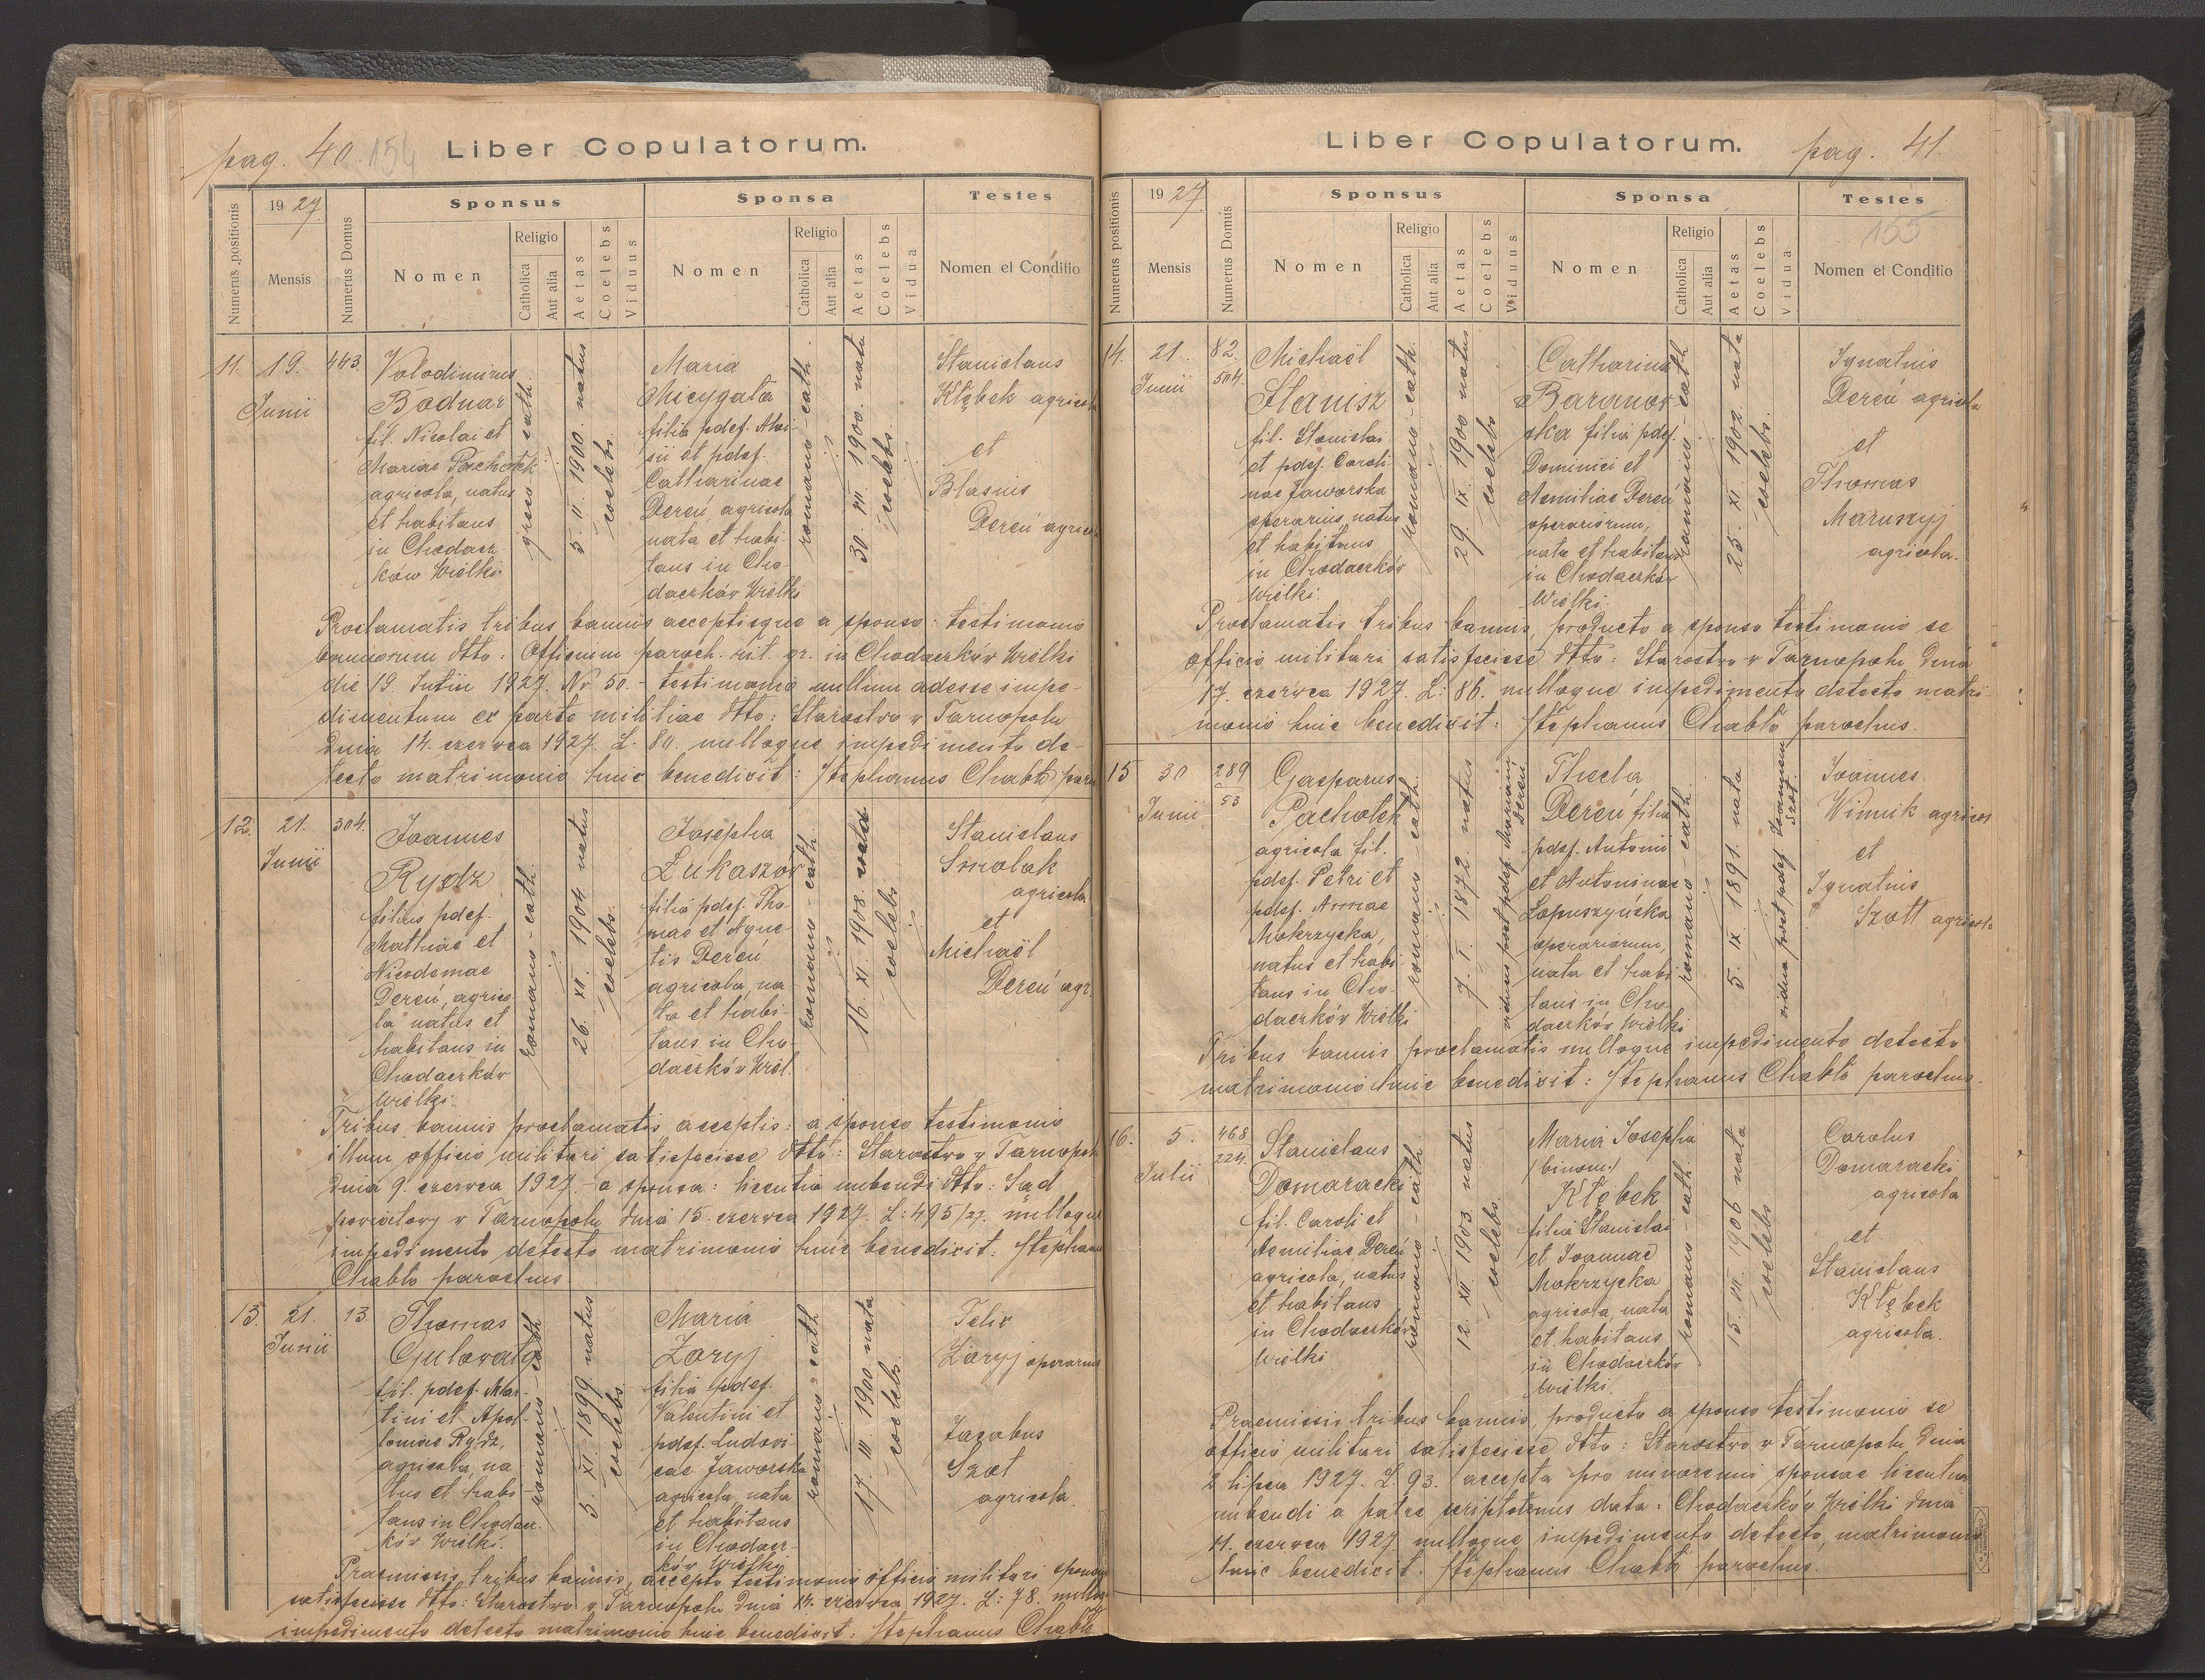 pag. 40. 154
Liber Copulatorum.
Numerus positionis
1927.
Mensis
Numerus Domus
Sponsus
Nomen
Religio
Catholica
Aut alia
Aetas
Coelebs
Viduus
Sponsa
Nomen
Religio
Catholica
Aut alia
Aetas
Coelebs
Vidua
Testes
Nomen et Conditio
11.
19.
Junii
443.
Volodimirus
Bodnar
fil. Nicolai et
Mariae Pacholek
agricola, natus
et habitans
in Chodacz-
ków Wielki
greco cath.
5. II. 1900. natus
coelebs.
Maria
Micygała
filia pdef. Aloi-
sii et pdef.
Catharinae
Dereń, agricola
nata et habi-
tans in Cho-
daczków Wielki
romano-cath.
30. VII. 1900. nata
coelebs.
Stanislaus
Kłębek agricola
et
Blasius
Dereń agricola
Proclamatis tribus bannis acceptisque a sponso: testimonio
bannorum dtto: Officium paroch. rit. gr. in Chodaczków Wielki
die 19. Junii 1927. Nr 50. - testimonio nullum adesse impe-
dimentum ex parte militiae dtto: Starostwo w Tarnopolu
dnia 14. czerwca 1927. L. 80. nulloque impedimento de-
tecto matrimonio huic benedixit: Stephanus Chabło paro
12.
21.
Junii
304.
Joannes
Rydz
filius pdef.
Mathiae et
Nicodemae
Dereń, agrico-
la natus et
habitans in
Chodaczków
Wielki.
romano-cath.
26. XII. 1904 natus
coelebs.
Josepha
Łukaszów
filia pdef. Tho-
mae et Agne-
tis Dereń
agricola, na-
ta et habi-
tans in Cho-
daczków Wiel.
romano-cath.
16. XI. 1908. nata
coelebs
Stanislaus
Smolak
agricola
et
Michaël
Dereń agr.
Tribus bannis proclamatis acceptis: a sponso testimonio
illum officio militari satisfecisse dtto: Starostwo w Tarnopolu
dnia 9. czerwca 1927. - a sponsa: licentia nubendi dtto: Sąd
powiatowy w Tarnopolu dnia 15. czerwca 1927. L: 495/27. nulloque
impedimento detecto matrimonio huic benedixit: Stephanus
Chabło parochus
13.
21.
Junii
13.
Thomas
Gulowaty
fil. pdef. Mar-
tini et Apol-
loniae Rydz,
agricola, na-
tus et habi-
tans in Chodacz-
ków Wielki.
romano-cath.
5. XI. 1899. natus
coelebs.
Maria
Zaryj
filia pdef.
Valentini et
pdef. Ludovi-
cae Jaworska
agricola nata
et habitans
in Chodacz-
ków Wielki
romano-cath
17. III. 1900. nata
coelebs.
Felix
Zaryj operarius
Jacobus
Szot
agricola.
Praemissis tribus bannis, accepto testimonio officio militari sponsum
satisfecisse dtto: Starostwo w Tarnopolu dnia 14. czerwca 1927. L: 78. nulloque
impedimento detecto matrimonio huic benedixit: Stephanus Chabło
Liber Copulatorum.
pag. 41.
155
Numerus positionis
1927.
Mensis
Numerus Domus
Sponsus
Nomen
Religio
Catholica
Aut alia
Aetas
Coelebs
Viduus
Sponsa
Nomen
Religio
Catholica
Aut alia
Aetas
Coelebs
Vidua
Testes
Nomen et Conditio
14.
21.
Junii
82.
504.
Michaël
Stanisz
fil. Stanislai
et pdef. Caroli-
nae Jaworska
operarius, natus
et habitans
in Chodaczków
Wielki.
romano-cath.
29. IX. 1900 natus
coelebs
Catharina
Baranow-
ska filia pdef.
Dominici et
Aemiliae Dereń
operariorum,
nata et habitans
in Chodaczków
Wielki.
romano-cath
25. XI. 1902. nata
coelebs.
Ignatius
Dereń agricola
et
Thomas
Maruszyj
agricola.
Proclamatis tribus bannis, producto a sponso testimonio se
officio militari satisfecisse dtto: Starostwo w Tarnopolu dnia
17. czerwca 1927. L: 86. nulloque impedimento detecto matri-
monio huic benedixit: Stephanus Chabło parochus.
15
30
Junii
289
53
Gasparus
Pacholek
agricola fil.
pdef. Petri et
pdef. Annae
Mokrzycka,
natus et habi-
tans in Cho-
daczków Wielki
romano-cath.
7. I. 1872. natus
viduus post pdef. Mariannam
Dereń
Thecla
Dereń filia
pdef. Antonii
et Antoninae
Łopuszyńska
operariorum,
nata et habi-
tans in Cho-
daczków Wielki
romano-cath.
5. IX. 1891. nata
vidua post pdef. Joannem
Szot.
Joannes
Winnik agricola
et
Ignatius
Szott agricola
Tribus bannis proclamatis nulloque impedimento detecto
matrimonio huic benedixit: Stephanus Chabło parochus.
16.
5.
Julii
468
224.
Stanislaus
Domaracki
fil. Caroli et
Aemiliae Dereń
agricola, natus
et habitans
in Chodaczków
Wielki
romano-cath
12. XII. 1903. natus
coelebs.
Maria Josepha
/binom:/
Kłębek
filia Stanislai
et Joannae
Mokrzycka
agricola, nata
et habitans
in Chodaczków
Wielki.
romano-cath.
15. III. 1906 nata
coelebs
Carolus
Domaracki
agricola
et
Stanislaus
Kłębek
agricola.
Praemissis tribus bannis, producto a sponso testimonio se
officio militari satisfecisse dtto: Starostwo w Tarnopolu dnia
2 lipca 1927. L. 93. accepta pro minorenni sponsae licentia
nubendi a patre scriptotenus data: Chodaczków Wielki dnia
11. czerwca 1927 nulloque impedimento detecto, matrimonio
huic benedixit: Stephanus Chabło parochus.